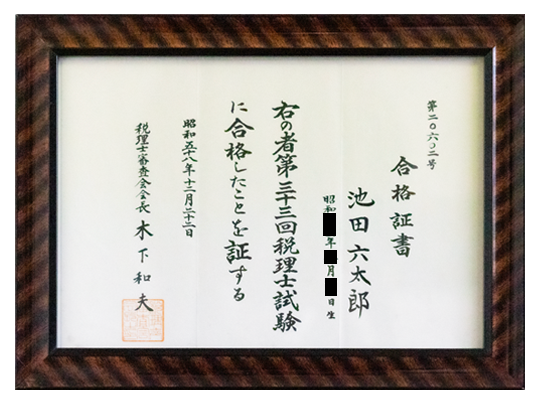 第二〇六〇二号
合格証書
池田六太郎
昭和 年 月 日生
右の者第三十三回税理士試験
に合格したことを証する
昭和五十八年十二月二十二日
税理士審査会会長 木下和夫